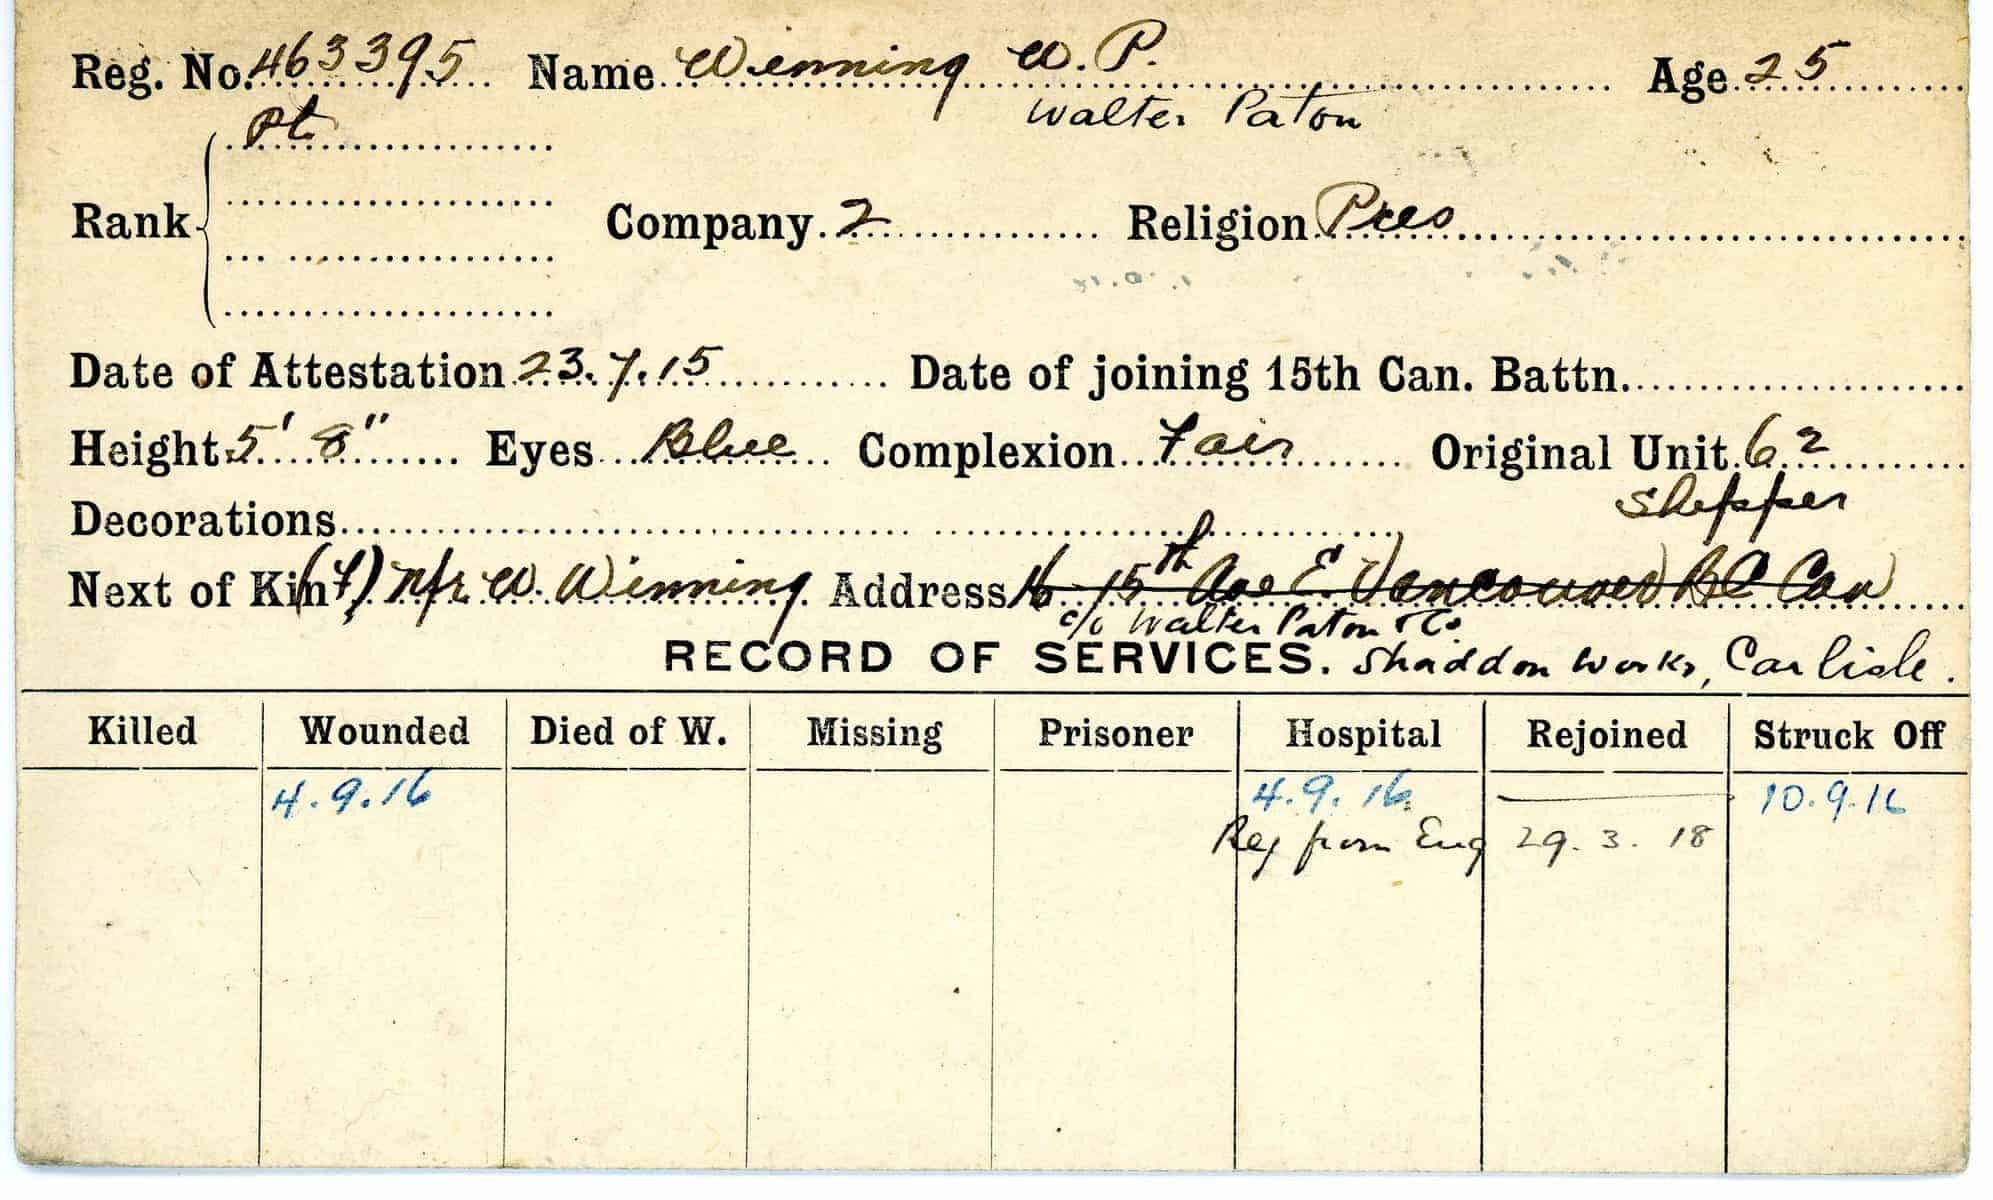 Reg. No. 463395 Name Winning W. P. Age 25
Walter Paton
Pt.
Rank Company 2 Religion Pres
Date of Attestation 23.7.15 Date of joining 15th Can. Battn.
Height 5' 8" Eyes Blue Complexion Fair Original Unit 62
Decorations
Next of Kin (F) Mr W. Winning Address 16 - 15th Ave E. Vancouver BC Can
c/o Walter Paton & Co.
RECORD OF SERVICES. Shaddon Works, Carlisle.
Killed Wounded Died of W. Missing Prisoner Hospital Rejoined Struck Off
4.9.16 4.9.16 10.9.16
Rej from Eng 29.3.18